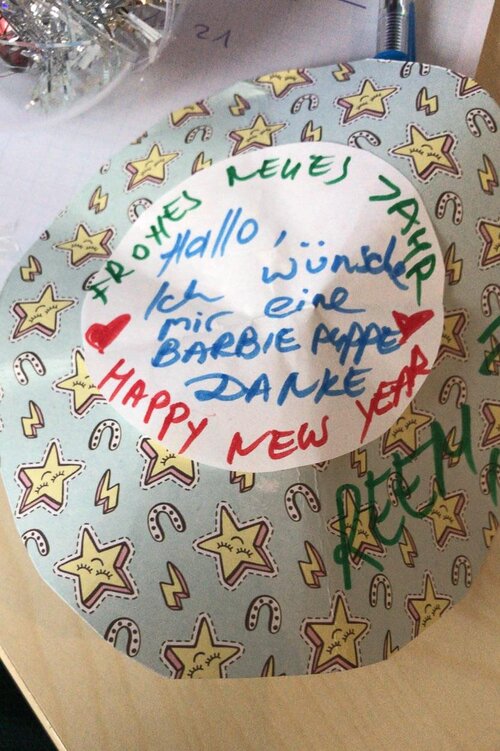 21
FROHES NEUES JAHR
Hallo,
Ich wünsche
mir eine
BARBIE PUPPE
DANKE
HAPPY NEW YEAR
REEM